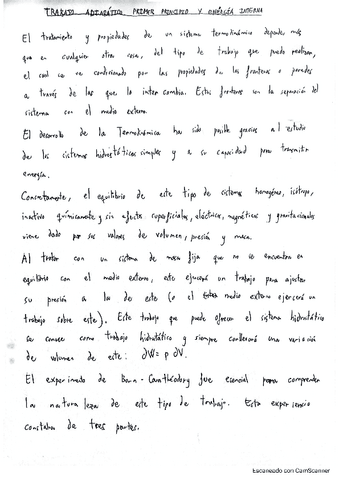 TRABAJO ADIABÁTICO, PRIMER PRINCIPIO Y ENERGÍA INTERNA
El tratamiento y propiedades de un sistema termodinámico depende más
que en cualquier otra cosa, del tipo de trabajo que pueda realizar,
el cual se ve condicionado por las propiedades de las fronteras o paredes
a través de las que lo intercambia. Estas fronteras son la separación del
sistema con el medio externo.
El desarrollo de la Termodinámica ha sido posible gracias al estudio
de los sistemas hidrostáticos simples y a su capacidad para transmitir
energía.
Concretamente, el equilibrio de este tipo de sistemas homogéneo, isótropo,
inactivo químicamente y sin efectos superficiales, eléctricos, magnéticos y gravitacionales
viene dado por sus valores de volumen, presión y masa.
Al tratar con un sistema de masa fija que no se encuentra en
equilibrio con el medio externo, este ejercerá un trabajo para ajustar
su presión a la de este (o el medio externo ejercerá un
trabajo sobre este). Este trabajo que puede ofrecer el sistema hidrostático
se conoce como trabajo hidrostático y siempre conllevará una variación
de volumen de este: ∂W = p ∂V.
El experimento de Born - Carathéodory fue esencial para comprender
la naturaleza de este tipo de trabajo. Esta experiencia
constaba de tres partes.
Escaneado con CamScanner